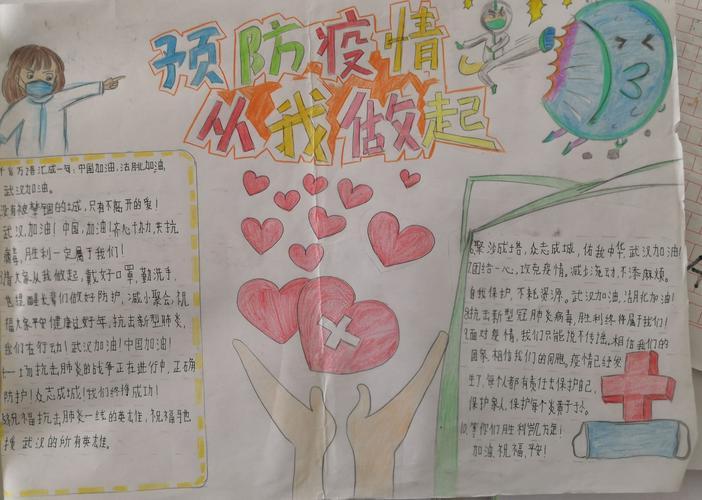 预防疫情
从我做起
千言万语汇成一句:中国加油,湖北加油,
武汉加油。
没有被禁锢的城,只有不离开的爱!
武汉,加油!中国,加油!齐心协力,来抗
病毒,胜利一定属于我们!
大家从我做起,戴好口罩,勤洗手,
也提醒长辈们做好防护,减小聚会,祝
福大家平安健康过好年。抗击新型肺炎,
我们在行动!武汉加油!中国加油!
一场抗击肺炎的战争正在进行中,正确
防护!众志成城!我们终将成功!
祝福抗击肺炎一线的英雄,祝福
武汉的所有英雄。
聚沙成塔,众志成城,佑我中华,武汉加油!
团结一心,攻克疫情。减少流动,不添麻烦。
自我保护,不耗资源。武汉加油,湖北加油!
抗击新型冠肺炎病毒,胜利终将属于我们!
面对疫情,我们只能说不传谣,相信我们的
国家,相信我们的同胞,疫情已经发
生了,每个人都有责任去保护自己,
保护家人,保护每个炎黄子孙。
10.等你们胜利凯旋!
加油,祝福,平安!